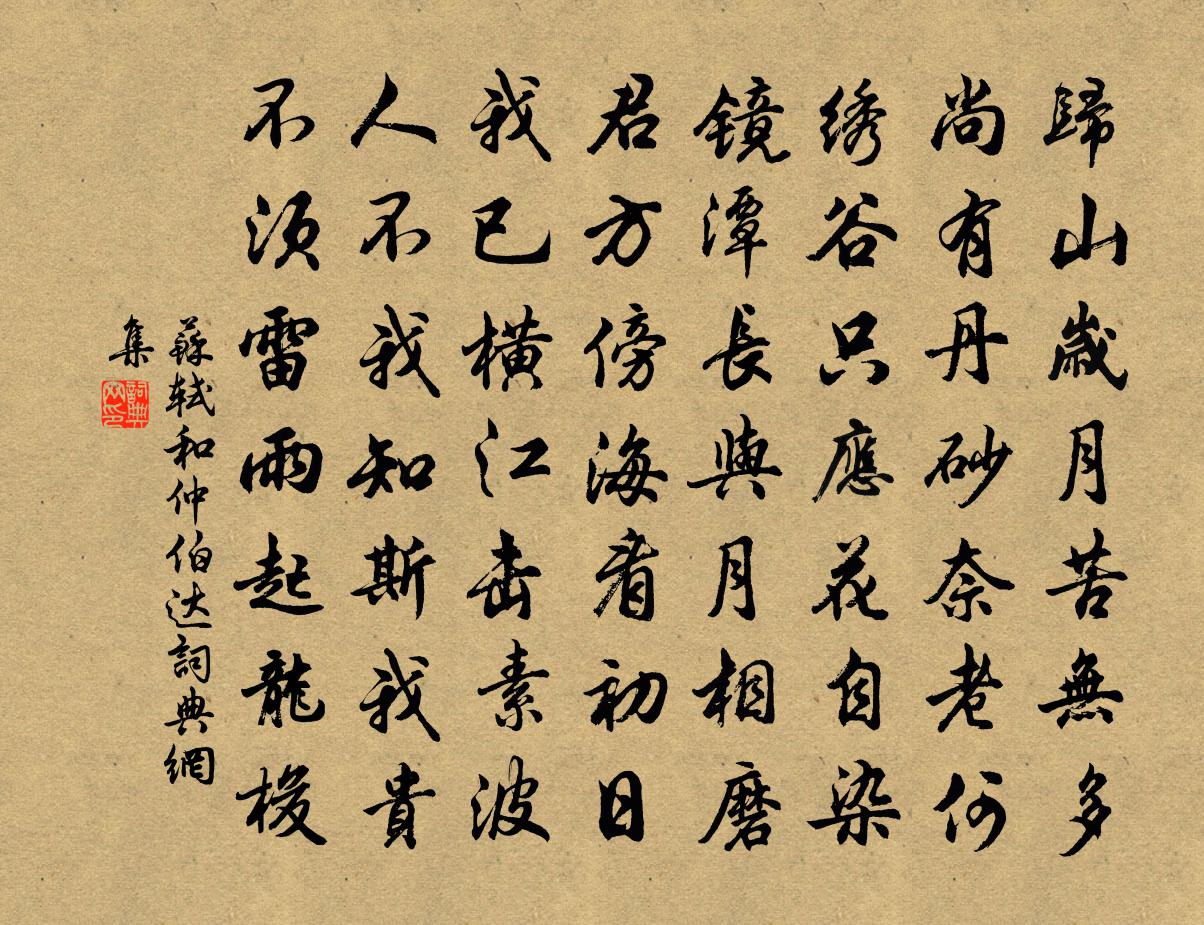 歸山歲月苦無多
尚有丹砂奈老何
绣谷只應花自染
镜潭長與月相磨
君方傍海看初日
我已横江击素波
人不我知斯我貴
不須雷雨起龍梭
蘇轼和仲伯达詞典網
集
詞典网印